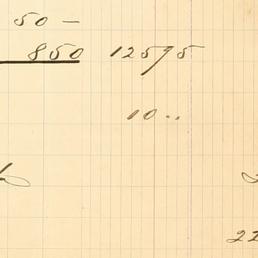 50 –
850 12595
10 ..
22